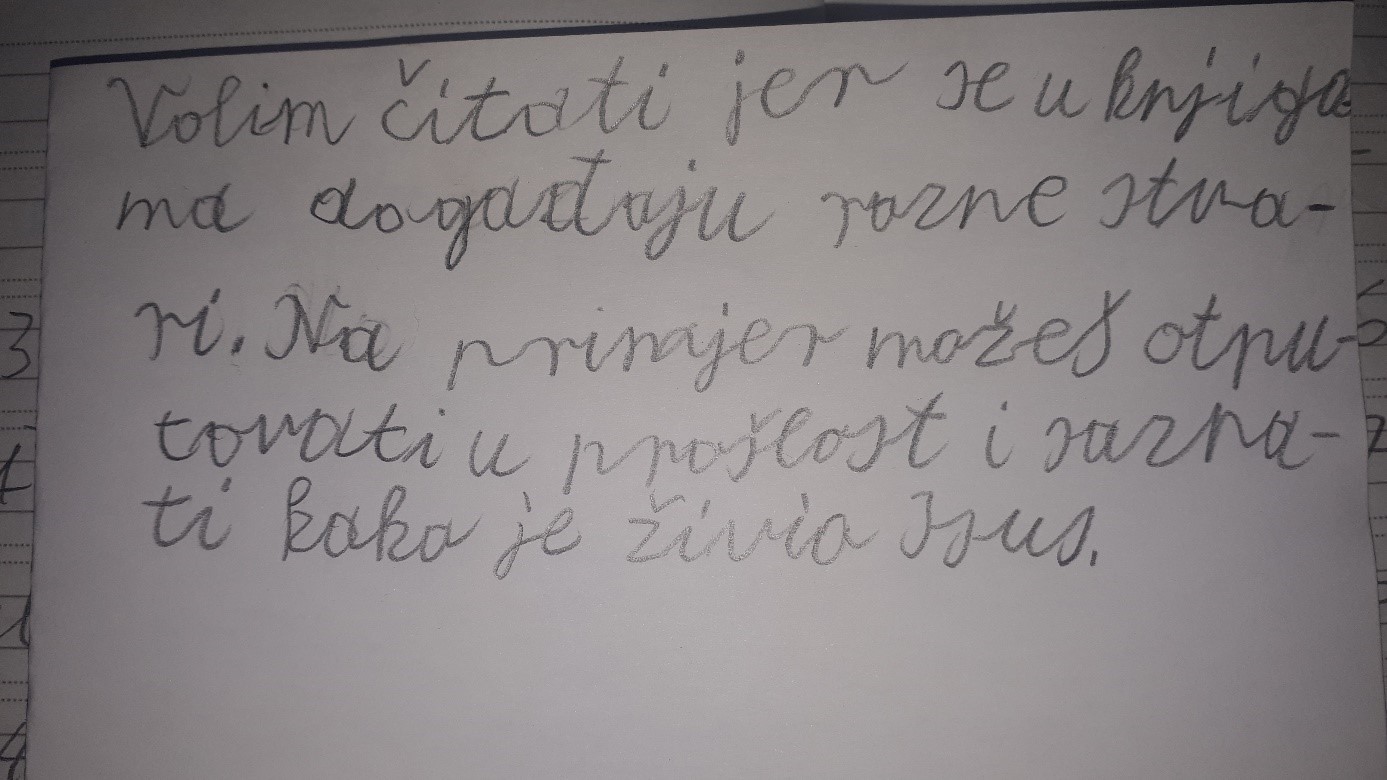 Volim čitati jer se u knjiga
ma događaju razne stva-
ri. Na primjer možeš otpu-
tovati u prošlost i sazna-
ti kako je živio Isus.